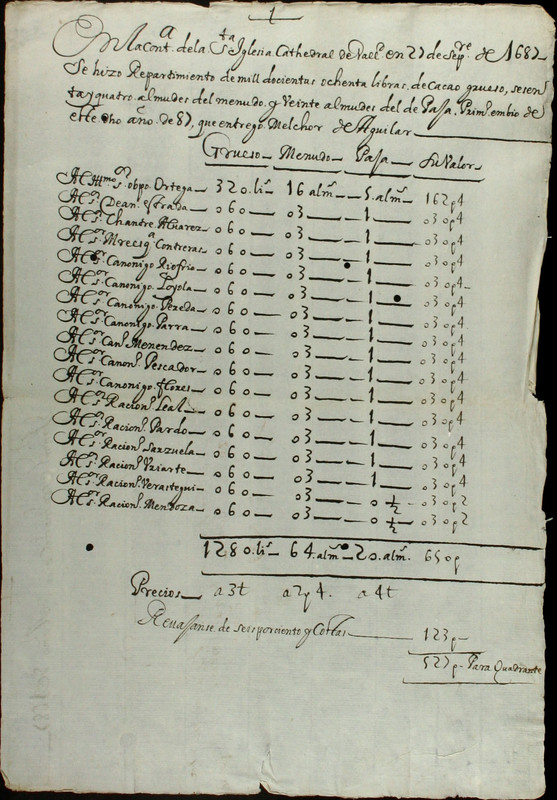 1
En la Cont.ª de la S.ta Iglesia Cathedral de Vall.d en 27 de Sep.re de 1687
Se hizo Repartimiento de mill docientas ochenta libras de Cacao grueso, sesen
ta y quatro almudes del menudo y Veinte almudes del de Pasa. Prim.º embio de
este dho año de 87, que entrego Melchor de Aguilar
Grueso Menudo Pasa Su Valor
Al Ill.mo S. obpo. Ortega 320 li.s 16 alm.s 5 alm.s 162 p 4
Al s.or Dean estrada 060 03 1 030 p 4
Al s.or Chantre Aluarez 060 03 1 030 p 4
Al s.or Mrescª Contreras 060 03 1 030 p 4
Al s.or Canonigo Riofrio 060 03 1 030 p 4
Al s.or Canonigo Loyola 060 03 1 030 p 4
Al s.or Canonigo Pereda 060 03 1 030 p 4
Al s.or Canonigo Parra 060 03 1 030 p 4
Al s.or Can.º Menendez 060 03 1 030 p 4
Al s.or Canon.º Pescador 060 03 1 030 p 4
Al s.or Canonigo flores 060 03 1 030 p 4
Al s.or Racion.º Leal 060 03 1 030 p 4
Al s.or Racion.º Pardo 060 03 1 030 p 4
Al s.or Racion.º Sarzuela 060 03 1 030 p 4
Al s.or Racion.º Yriarte 060 03 1 030 p 4
Al s.or Racion.º Verastegui 060 03 0 ½ 030 p 2
Al s.or Racion.º Mendoza 060 03 0 ½ 030 p 2
1280 li.s 64 alm.s 20 alm.s 650 p
Precios a 3t a 2p 4. a 4t
Reuasanse de seis por ciento y Costas 123 p
527 p Para Quadrante